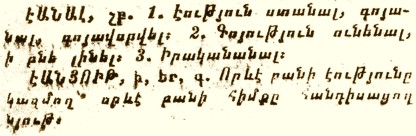 ԷԱՆԱԼ, չք. 1. Էություն ստանալ, գոյա-
նալ, գոյավորվել: 2. Գոյություն ունենալ,
ի բնե լինել: 3. Իրականանալ:
ԷԱՆՅՈՒԹ, ի, եր, գ. Որևէ բանի էությունը
կազմող՝ որևէ բանի հիմքը հանդիսացող
նյութ: